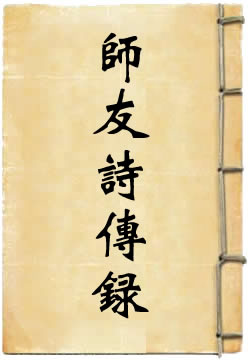 師友詩傳録